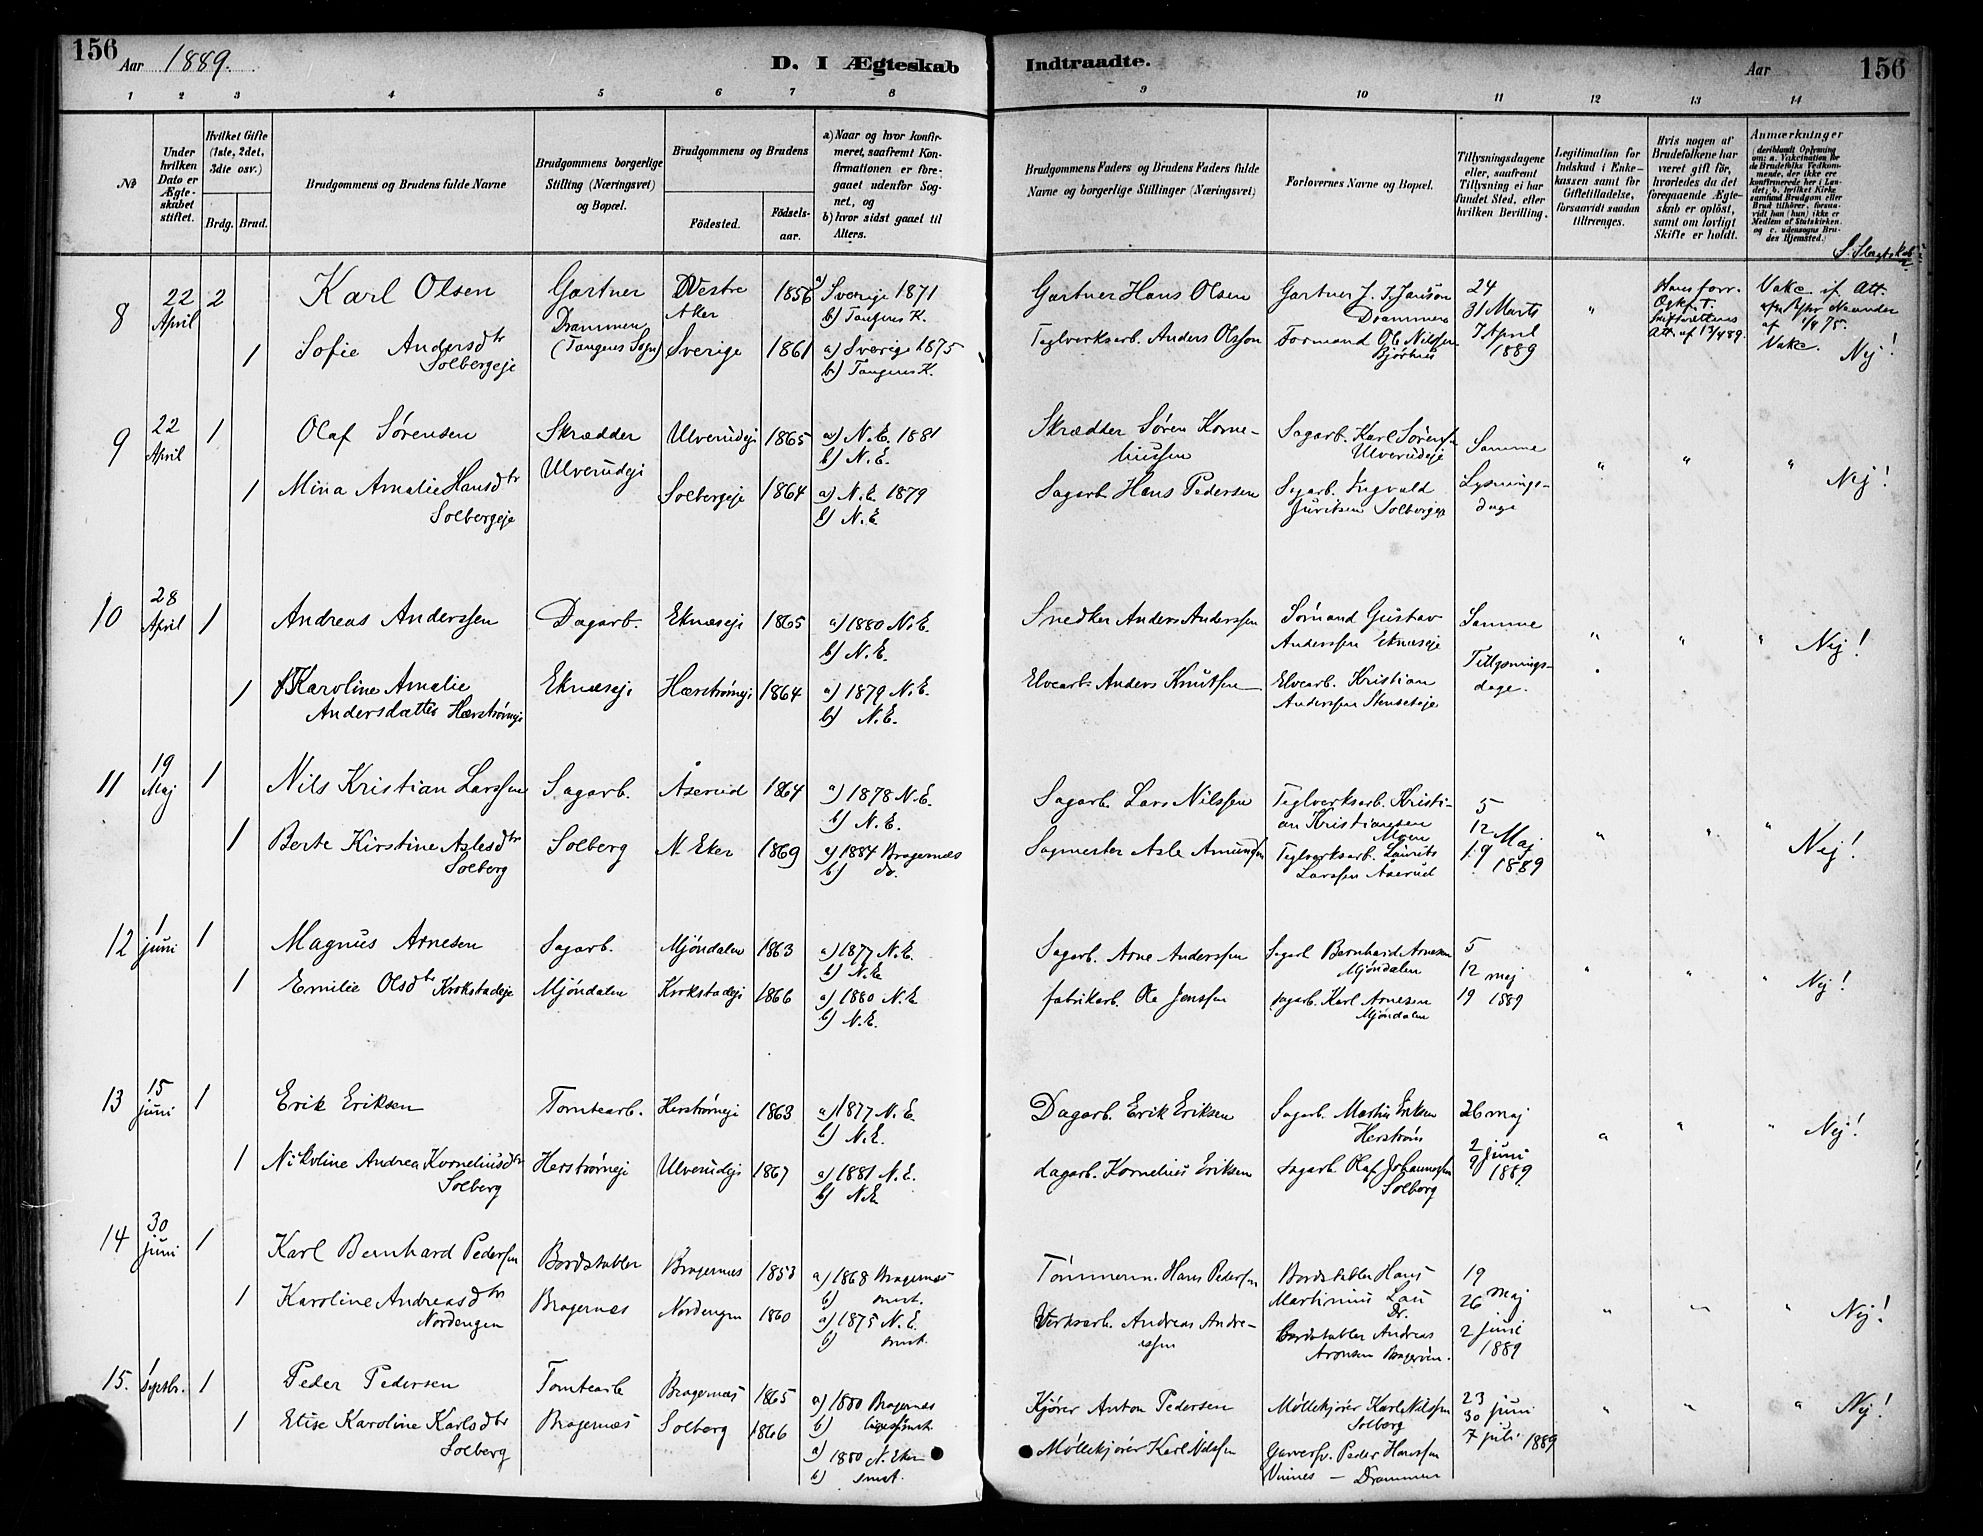 156
Aar 1889.
D. I Ægteskab
Indtraadte.
Aar
156
1 2 3 4 5 6 7 8 9 10 11 12 13 14
№
Under hvilken Dato er Ægteskabet stiftet.
Hvilket Gifte (1ste, 2det, 3die osv.)
Brdg. Brud.
Brudgommens og Brudens fulde Navne
Brudgommens borgerlige Stilling (Næringsvei) og Bopæl.
Brudgommens og Brudens
Fødested. Fødselsaar.
a) Naar og hvor konfirmeret, saafremt Konfirmationen er foregaaet udenfor Sognet, og
b) hvor sidst gaaet til Alters.
Brudgommens Faders og Brudens Faders fulde Navne og borgerlige Stillinger (Næringsvei)
Forlovernes Navne og Bopæl.
Tillysningsdagene eller, saafremt Tillysning ei har fundet Sted, efter hvilken Bevilling.
Legitimation for Indskud i Enkekassen samt for Giftetilladelse, forsaavidt saadan tiltrænges.
Hvis nogen af Brudefolkene har været gift før, hvorledes da det foregaaende Ægteskab er opløst, samt om lovligt Skifte er holdt.
Anmærkninger
(deriblandt Oplysning om: a. Vakcination for de Brudefolks Vedkommende, der ikke ere konfirmerede her i Landet; b. hvilket Kirkesamfund Brudgom eller Brud tilhører, forsaavidt han (hun) ikke er Medlem af Statskirken, og c. udensogns Brudes Hjemsted.)
S. Slegtskab?
8 22 April 2 Karl Olsen Gartner Vestre Aker 1856 a) Sverige 1871 b) Tangens K.
Gartner Hans Olsen Gartner J. J. Janson Drammen 24 31 Marts 7 April 1889 " Vakc.
1 Sofie Andersdtr Solbergeje Drammen (Tangens Sogn) Sverige 1861 a) Sverige 1875 b) Tangens K.
Teglverksarb. Anders Olsson Formand O. C. Nilssen Vakc. Nej!
9 22 April 1 Olaf Sørensen Skrædder Ulverudeje 1865 a) N.E. 1881 b) N.E.
Skrædder Søren Korneliussen Sagarb. Karl Sørensen Ulverudeje Samme Lysningsdage " " " Nej!
1 Mina Amalie Hansdtr Solbergeje Ulverudeje Solbergeje 1864 a) N.E. 1879 b) N.E.
Sagarb. Hans Pedersen Sagarb. Ingvald Solbergeje
10 28 April 1 Andreas Anderssen Dagarb. Eknæseje 1865 a) 1880 N.E. b) N.E.
Snedker Anders Anderssen Sømand Gustav Anderssen Eknæseje Samme Tillysningsdage. " " " Nej!
1 Karoline Amalie Andersdatter Hærstrømeje Eknæseje Hærstrømeje 1864 a) 1879 N.E. b) N.E.
Elvearb. Anders Knutsen Elvearb. Kristian Anderssen Stenseteje
11 19 Maj 1 Nils Kristian Larssen Sagarb. Åserud 1864 a) 1878 N.E. b) N.E.
Sagarb. Lars Nilssen Teglverksarb. Kristian Kristiansen Moen 5 12 19 Maj 1889 " " " Nej!
1 Berte Kirstine Aslesdtr Solberg Solberg N. Eker 1869 a) 1884 Bragernæs b) do.
Sagmester Asle Amundsen Teglverksarb. Laurits Larssen Aserud
12 1 juni 1 Magnus Arnesen Sagarb. Mjøndalen 1863 a) 1877 N.E. b) N.E.
Sagarb. Arne Anderssen Sagarb Bernhard Arnesen Mjøndalen 5 12 19 maj 1889 " " " Nej!
1 Emilie Olsdtr Krokstadeje Mjøndalen Krokstadeje 1866 a) 1880 N.E. b) N.E.
fabrikarb. Ole Jenssen sagarb. Karl Arnesen Mjøndalen
13 15 juni 1 Erik Eriksen Tomtearb. Herstrømeje 1863 a) 1877 N.E. b) N.E.
Dagarb. Erik Eriksen Sagarb. Martin Eriksen Herstrøm 26 maj 2 juni 9 1889 " " " Nej!
1 Nikoline Andrea Korneliusdtr Solberg Herstrømeje Ulverudeje 1867 a) 1881 N.E. b) N.E.
dagarb. Kornelius Eriksen sagarb. Olaf Johannessen Solberg
14 30 juni 1 Karl Bernhard Pederssen Bordstabler Bragernæs 1853 a) 1868 Bragernæs b) smst.
Tømmerm. Hans Pedersen Bordstabler Hans Martinius Lau Dr. 19 26 maj 2 juni 1889 " " " Nej!
1 Karoline Andreasdtr Nordengen Bragernæs Nordengen 1860 a) 1875 N.E. b) smst.
Verksarb. Andreas Andreassen Bordstabler Andreas Aronsen Bragernæs.
15. 1 septbr. 1 Peder Pedersen Tomtearb Bragernæs 1865 a) 1880 Bragernæs b) ligesaa smst.
Kjører Anton Pedersen Møllekjører Karl Nilssen Solberg 23 30 juni 7 juli 1889 " " " Nej!
1 Elise Karoline Karlsdtr Solberg Bragernæs Solberg 1866 a) 1880 N. Eker b) smst.
Møllekjører Karl Nilssen Garversv. Peder Hanssen Vinnes – Drammen